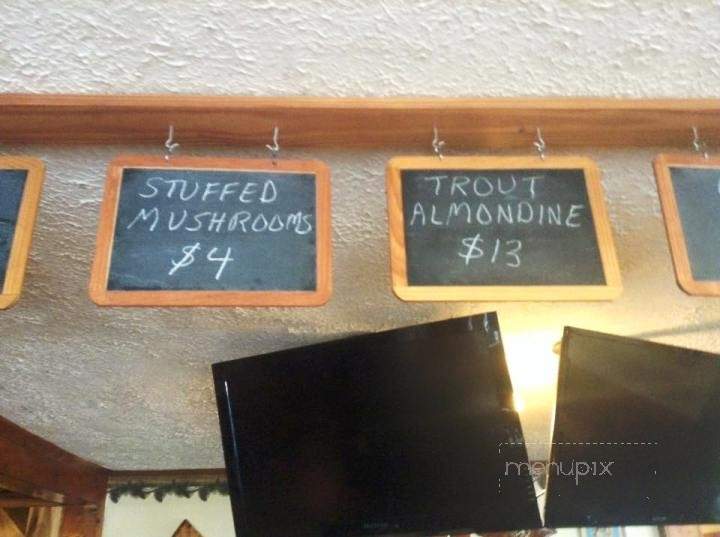 STUFFED
MUSHROOMS
$4
TROUT
ALMONDINE
$13
menupix